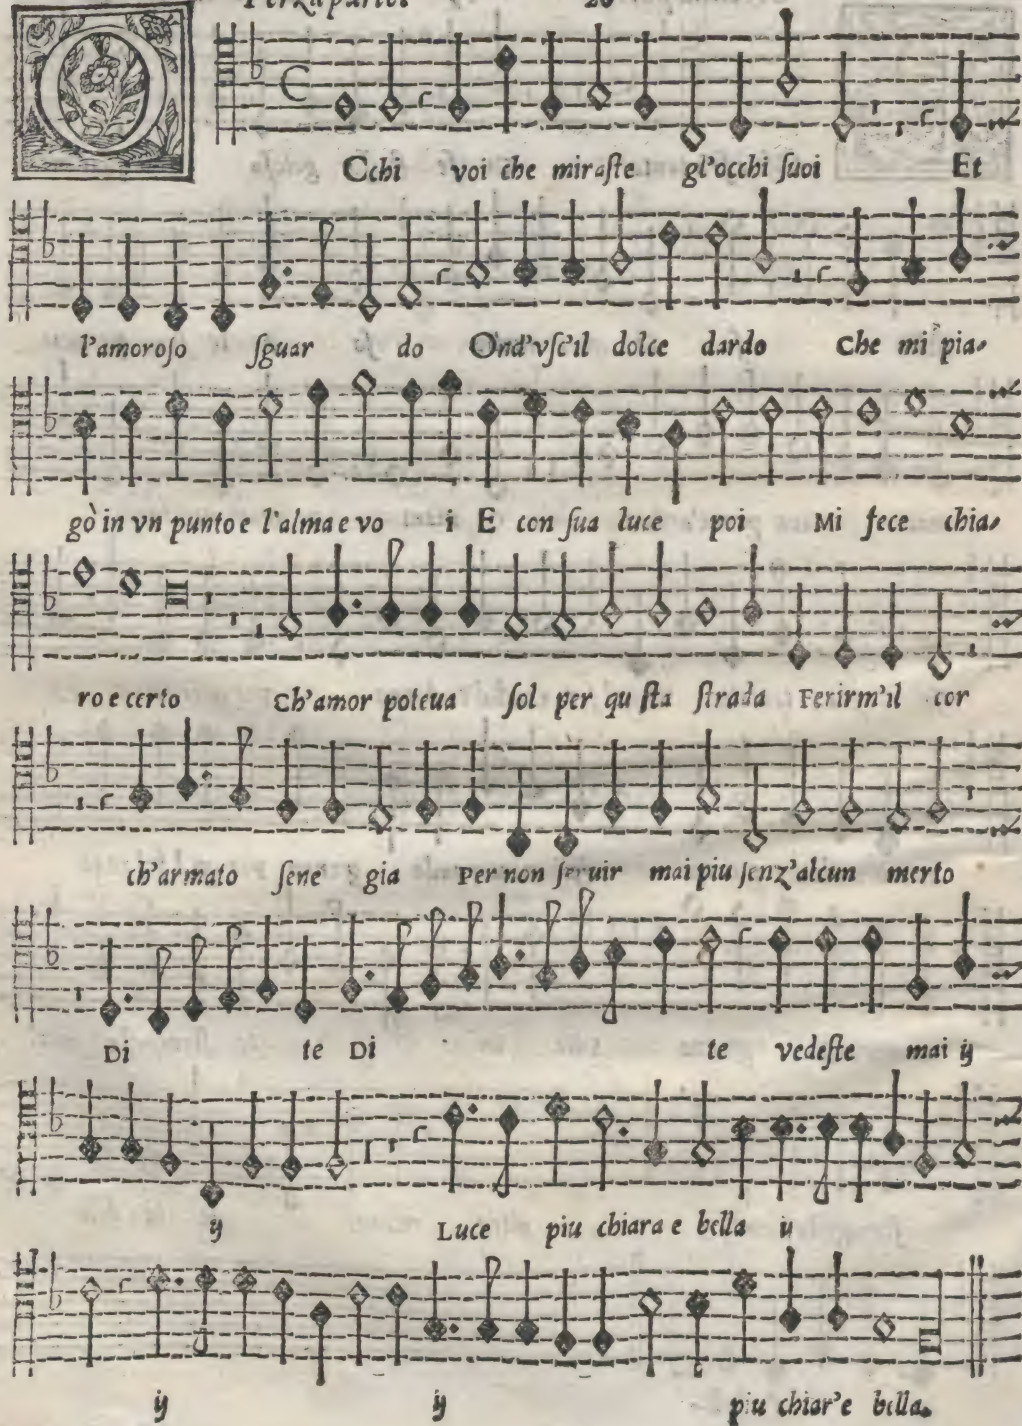 Terza parte. 20
OCchi voi che miraſte gl'occhi ſuoi Et
l'amoroſo ſguar do Ond'vſc'il dolce dardo Che mi pia-
gò in vn punto e l'alma e vo i E con ſua luce poi Mi fece chia-
ro e certo Ch'amor poteua ſol per qu ſta ſtrada Ferirm'il cor
ch'armato ſene gia Per non ſeruir mai piu ſenz'alcun merto
Di te Di te vedeſte mai ij
ij Luce piu chiara e bella ij
ij ij piu chiar'e bella.